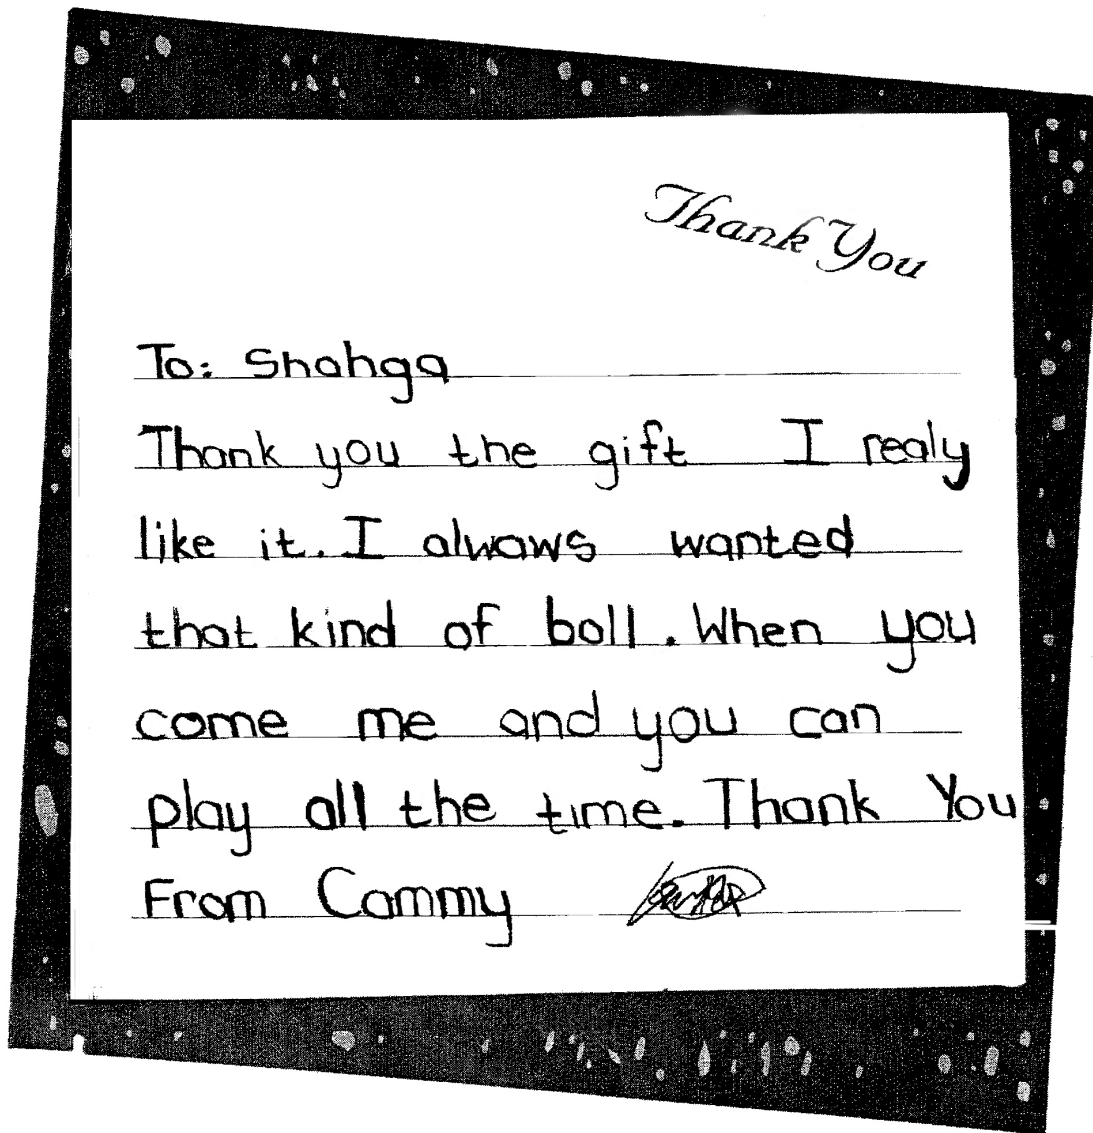 Thank You
To: Shahga
Thank you the gift I realy
like it. I alwaws wanted
that kind of boll. When you
come me and you can
play all the time. Thank You
From Cammy